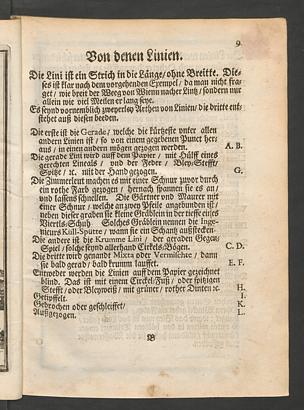 9
Von denen Linien.
Die Lini ist ein Strich in die Länge/ ohne Breitte. Die-
ses ist klar nach dem vorgehenden Exempel/ da man nicht fra-
get / wie breit der Weeg von Wienn nacher Lintz / sondern nur
allein wie viel Meilen er lang seye.
Es seynd vornemblich zweyerley Arthen von Linien/ die dritte ent-
stehet auß diesen beeden.
Die erste ist die Gerade/ welche die kürtzeste unter allen
andern Linien ist / so von einem gegebenen Punct her-
aus / in einen andern mögen gezogen werden. A. B.
Die gerade Lini wird auff dem Papier / mit Hülff eines
gerechten Lineals / und der Feder / Bley-Stefft/
Spitze / ꝛc. mit der Hand gezogen. G.
Die Zimmerleut machen es mit einer Schnur zuvor durch
ein rothe Farb gezogen / hernach spannen sie es an/
und lassens schnellen. Die Gärtner und Maurer mit
einer Schnur / welche an zwey Pfeile angebunden ist/
neben dieser graben sie kleine Gräblein in der tieffe eines
Viertls-Schuh. Solches Gräblein nennen die Inge-
nieurs Kull-Spütte/ wann sie ein Schantz außstecken.
Die andere ist die Krumme Lini / der geraden Gegen-
Spiel / solche seynd allerhand Circkels-Bögen. C. D.
Die dritte wird genandt Mixta oder Vermischte / dann
sie bald gerad / bald krumm laufft. E. F.
Eintweder werden die Linien auff dem Papier gezeichnet
blind. Das ist mit einem Circkel-Fuß / oder spitzigen
Stefft / oder Bleyweiß / mit grüner / rother Dinten ꝛc. H.
Getipffelt. I.
Gebrochen oder geschleiffet/ K.
Außgezogen. L.
B